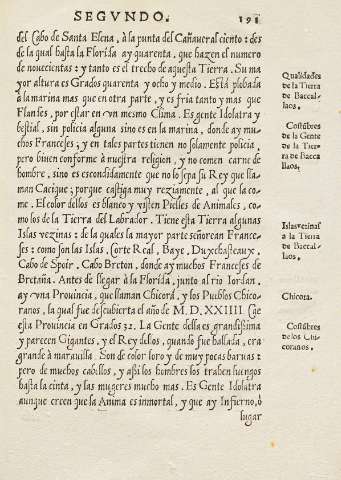 SEGVNDO. 191
del Cabo de Santa Elena, à la punta del Cañaueral ciento: des
de la qual basta la Florida ay quarenta, que hazen el numero
de nouecientas: y tanto es el trecho de aquesta Tierra. Su ma
yor altura es Grados quarenta y ocho y medio. Està poblada
à la marina mas que en otra parte, y es fria tanto y mas que
Flandes, por estar en vn mesmo Clima. Es gente Idolatra y
bestial, sin policia alguna sino es en la marina, donde ay mu
chos Franceses; y en tales partes tienen no solamente policia,
pero biuen conforme à nuestra religion, y no comen carne de
hombre, sino es escondidamente que no lo sepa su Rey que lla-
man Cacique; porque castiga muy reziamente, al que la co=
me. El color dellos es blanco y visten Pielles de Animales, co=
mo los de la Tierra del Labrador. Tiene esta Tierra algunas
Islas vezinas: de la quales la mayor parte señorean France=
ses: como son las Islas, Corte Real, Baye, Duxchasteaux,
Cabo de Spoir, Cabo Breton, donde ay muchos Franceses de
Bretaña. Antes de llegar à la Florida, junto al rio Iordan,
ay vna Prouincia, que llaman Chicorà, y los Pueblos Chico=
ranos, la qual fue descubierta el año de M.D.XXIIII. Cae
esta Prouincia en Grados 32. La Gente della es grandissima
y parecen Gigantes, y el Rey dellos, quando fue ballada, era
grande à marauilla. Son de color loro y de muy pocas baruas:
pero de muchos cabellos, y assi los hombres los traben luengos
basta la cinta, y las mugeres mucho mas. Es Gente Idolatra
aunque creen que la Anima es inmortal, y que ay Infierno, ò
lugar
Qualidades
de la Tierra
de Baccal-
laos.
Costũbres
de la Gente
de la Tier-
ra de Bacca
llaos.
Islas vezinas
a la Tierra
de Baccal-
laos.
Chicora.
Costũbres
de los Chi-
coranos.